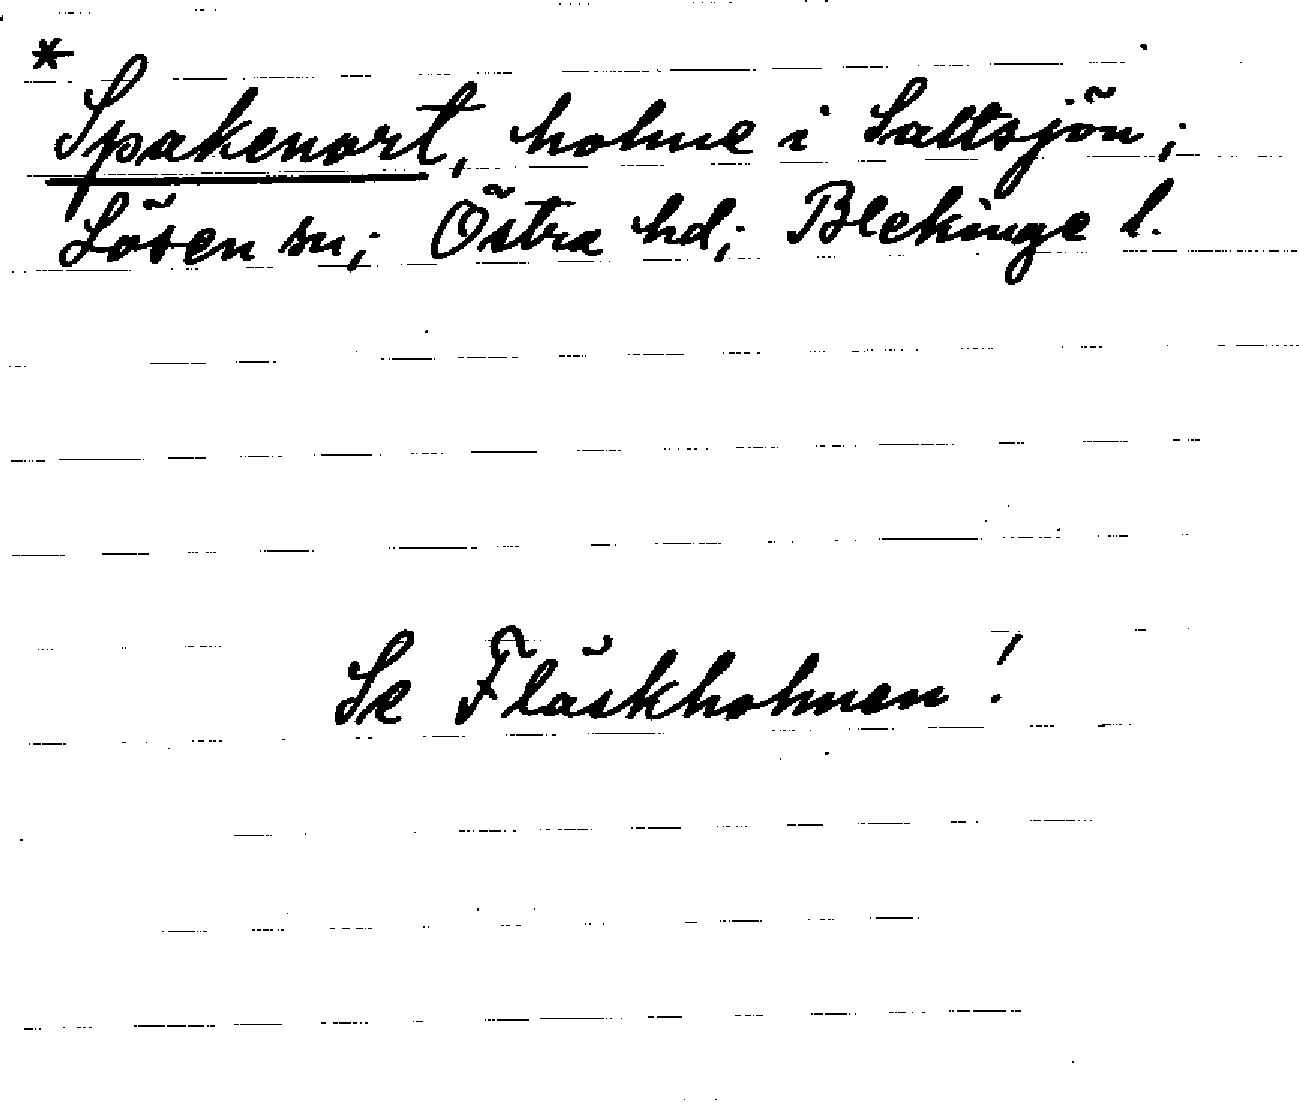 * Spakenort, holme i Saltsjön;
Lösen sn; Östra hd; Blekinge l.
Se Fläskholmen!